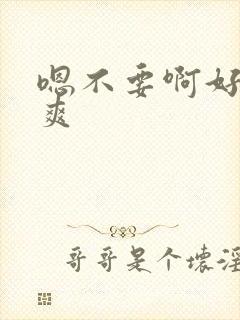 嗯不要啊好
爽
哥哥是个坏淫